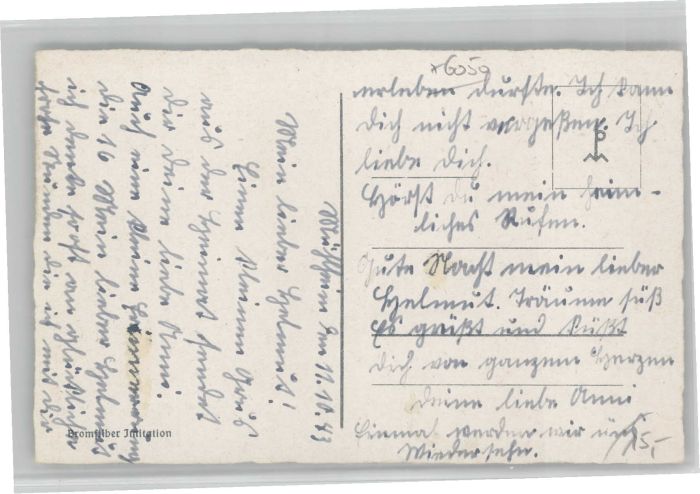 Mühlheim den 11.10.43
Mein lieber Helmut!
Einen kleinen Gruß
aus der Heimat sendet
dir deine liebe Anni.
Auch eine kleine Erinnerung
die 16 Mein lieber Helmut
ich denke so oft an glückliche
frohe Stunden die ich mit dir
erleben durfte. Ich kann
dich nicht vergeßen. Ich
liebe dich.
Hörst du mein heim-
liches Rufen.
Gute Nacht mein lieber
Helmut. Träume süß
Es grüßt und küßt
dich von ganzem Herzen
deine liebe Anni
Einmal werden wir uns
Wiedersehn.
*6059
15,-
Bromsilber Imitation